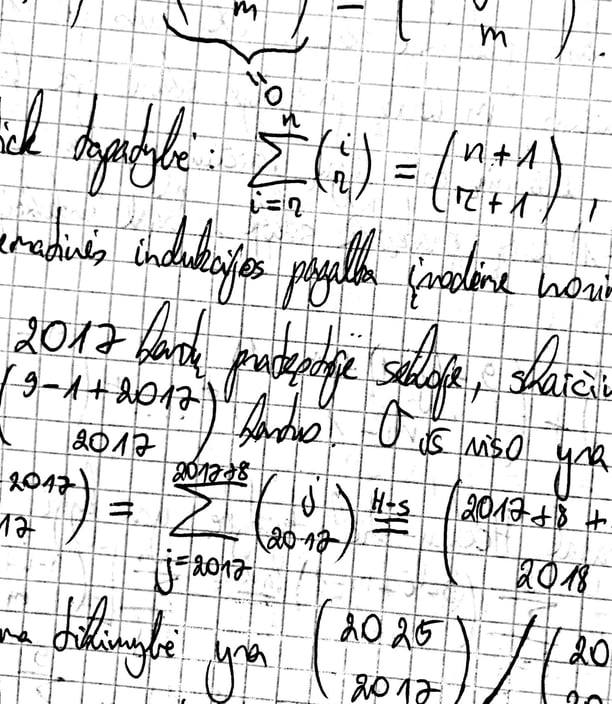 m ) = ( m ) .
"0
ick tapatybė: \sum_{i=r}^{n} \binom{i}{r} = \binom{n+1}{r+1} ,
ematinės indukcijos pagalba įrodėme nori
2017 kartų pradėtoje sekoje, skaiči
\binom{9-1+2017}{2017} kartus. O iš viso yra
2017 ) = \sum_{j=2017}^{2017+8} \binom{j}{2017} \overset{H-s}{=} ( 2017+8+
17 2018
tikimybė yra \binom{2025}{2017} / ( 20